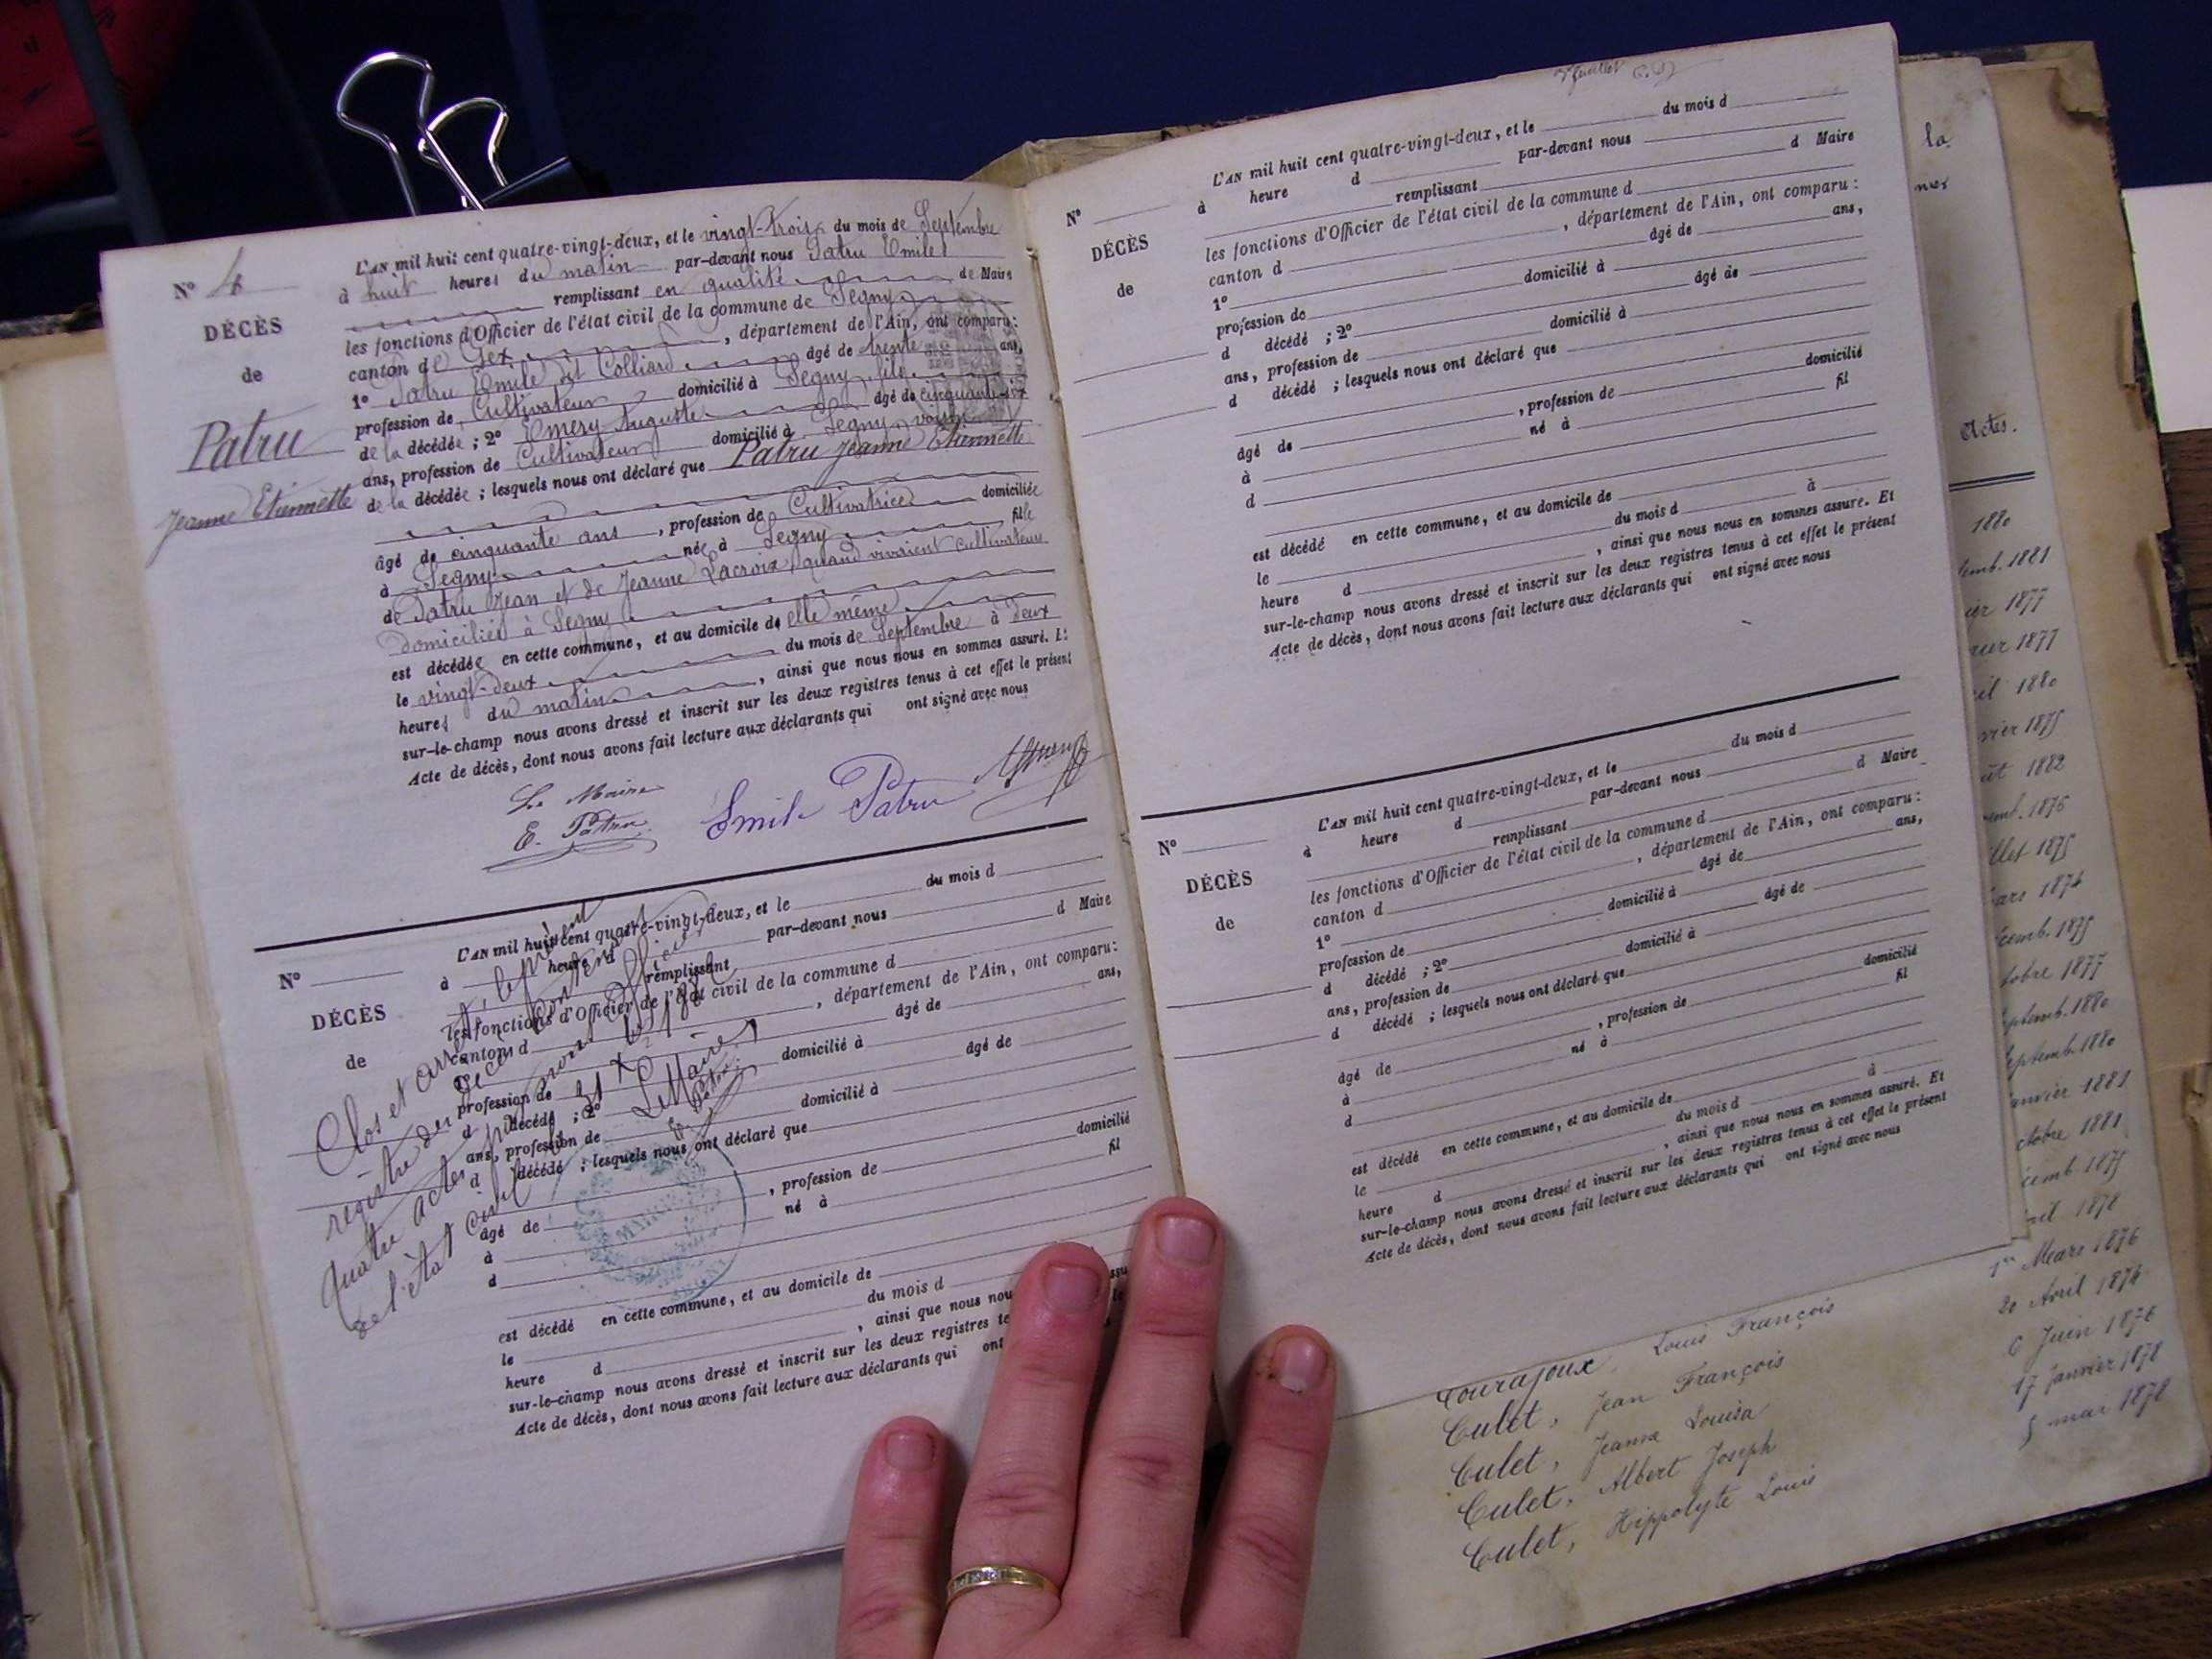 N° 4
DÉCÈS
de
Patru
Jeanne Etiennette
L'AN mil huit cent quatre-vingt-deux, et le vingt-trois du mois de Septembre
à huit heures du matin par-devant nous Patru Emile
remplissant en qualité de Maire
les fonctions d'Officier de l'état civil de la commune de Segny
canton de Gex, département de l'Ain, ont comparu :
1° Patru Emile dit Colliard âgé de trente ans,
profession de Cultivateur domicilié à Segny, fils
de la décédée ; 2° Emery Auguste âgé de cinquante-six
ans, profession de Cultivateur domicilié à Segny voisin
de la décédée ; lesquels nous ont déclaré que Patru Jeanne Etiennette
âgé de cinquante ans, profession de Cultivatrice domiciliée
à Segny née à Segny fille
de Patru Jean et de Jeanne Lacroix, quand vivaient cultivateurs
domiciliés à Segny
est décédée en cette commune, et au domicile de elle même
le vingt-deux du mois de Septembre à deux
heures du matin, ainsi que nous nous en sommes assuré. Et
sur-le-champ nous avons dressé et inscrit sur les deux registres tenus à cet effet le présent
Acte de décès, dont nous avons fait lecture aux déclarants qui ont signé avec nous
Le Maire
E. Patru
Emile Patru
N°
DÉCÈS
de
L'AN mil huit cent quatre-vingt-deux, et le du mois d
à heure d par-devant nous
remplissant d Maire
les fonctions d'Officier de l'état civil de la commune d
canton d , département de l'Ain, ont comparu :
ans,
profession de domicilié à âgé de
d décédé ; 2°
ans, profession de domicilié à âgé de
d décédé ; lesquels nous ont déclaré que
âgé de , profession de domicilié
à né à fil
d
est décédé en cette commune, et au domicile de
le du mois d
heure d , ainsi que nous nou
sur-le-champ nous avons dressé et inscrit sur les deux registres te
Acte de décès, dont nous avons fait lecture aux déclarants qui ont
Clos et arrêté, le présent
registre des décès contenant
quatre actes par nous Officier
de l'état civil
Le Maire
MAIRIE
N°
DÉCÈS
de
L'AN mil huit cent quatre-vingt-deux, et le du mois d
à heure d par-devant nous
remplissant d Maire
les fonctions d'Officier de l'état civil de la commune d
canton d , département de l'Ain, ont comparu :
1° âgé de ans,
profession de domicilié à
d décédé ; 2° âgé de
ans, profession de domicilié à
d décédé ; lesquels nous ont déclaré que
âgé de , profession de domicilié
à né à fil
d
est décédé en cette commune, et au domicile de
le du mois d à
heure d , ainsi que nous nous en sommes assuré. Et
sur-le-champ nous avons dressé et inscrit sur les deux registres tenus à cet effet le présent
Acte de décès, dont nous avons fait lecture aux déclarants qui ont signé avec nous
N°
DÉCÈS
de
L'AN mil huit cent quatre-vingt-deux, et le du mois d
à heure d par-devant nous
remplissant d Maire
les fonctions d'Officier de l'état civil de la commune d
canton d , département de l'Ain, ont comparu :
1° âgé de ans,
profession de domicilié à
d décédé ; 2° âgé de
ans, profession de domicilié à
d décédé ; lesquels nous ont déclaré que
âgé de , profession de domicilié
à né à fil
d
est décédé en cette commune, et au domicile de
le du mois d à
heure d , ainsi que nous nous en sommes assuré. Et
sur-le-champ nous avons dressé et inscrit sur les deux registres tenus à cet effet le présent
Acte de décès, dont nous avons fait lecture aux déclarants qui ont signé avec nous
la
Actes.
1880
emb. 1881
ier 1877
rier 1877
ril 1880
vrier 1875
ût 1882
emb. 1876
illet 1875
ars 1874
écemb. 1875
tobre 1877
eptemb. 1880
eptemb. 1880
anvier 1881
ctobre 1881
écemb. 1875
vril 1878
1er Mars 1876
Tourajoux, Louis François 20 Avril 1874
Culet, Jean François 6 Juin 1876
Culet, Jeanne Louisa 17 janvier 1878
Culet, Albert Joseph 5 mai 1878
Culet, Hippolyte Louis